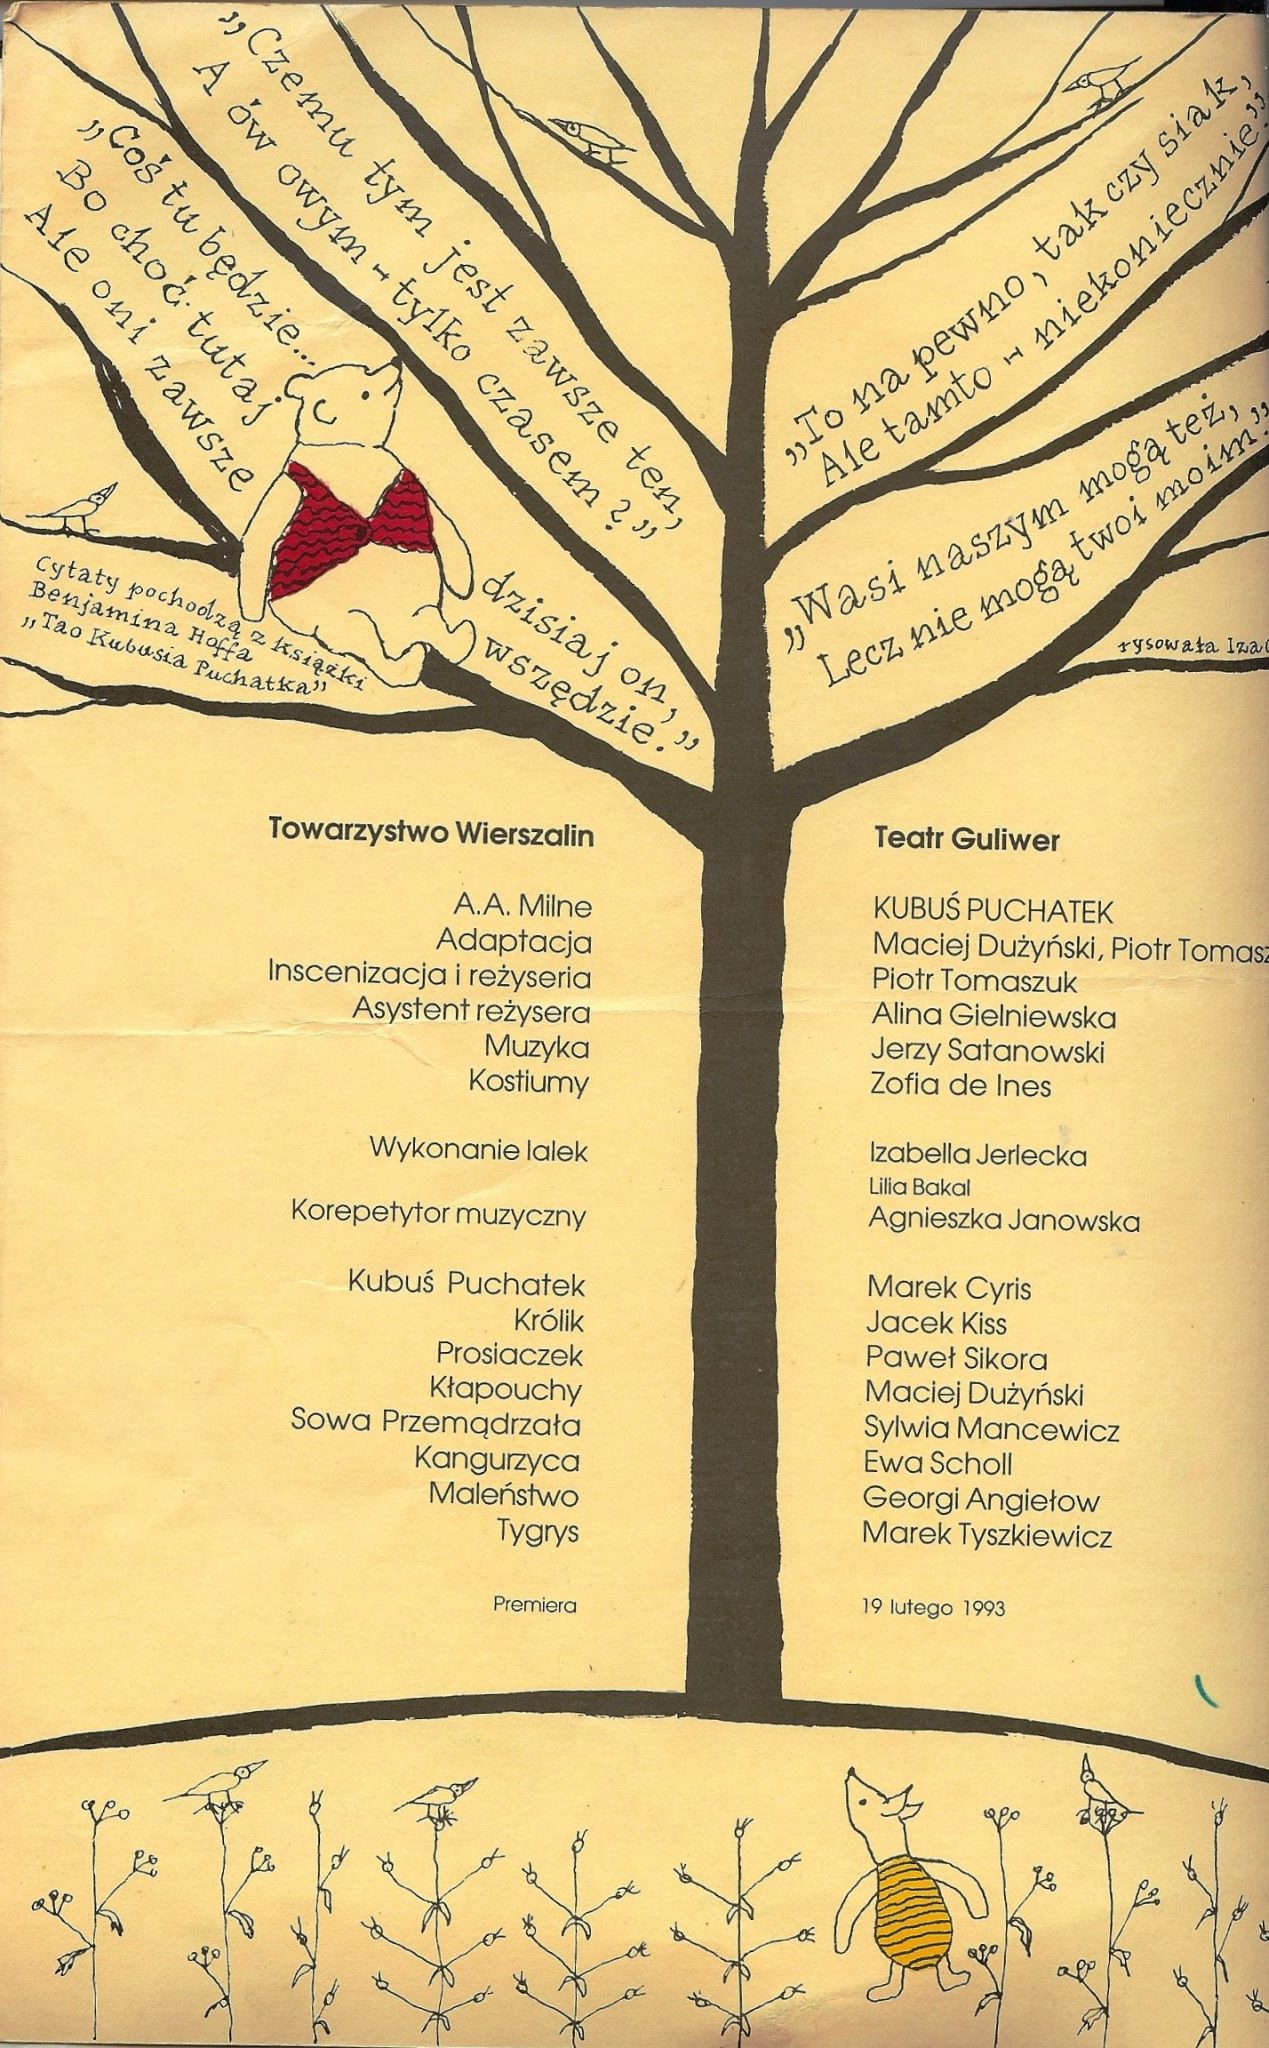 „Czemu tym jest zawsze ten,
A ów owym - tylko czasem?”
„Coś tu będzie...
Bo choć tutaj
Ale oni zawsze
dzisiaj on,
wszędzie.”
„To na pewno, tak czy siak,
Ale tamto - niekoniecznie.”
„Wasi naszym mogą też,
Lecz nie mogą twoi moim.”
Cytaty pochodzą z książki
Benjamina Hoffa
„Tao Kubusia Puchatka”
rysowała Iza
Towarzystwo Wierszalin Teatr Guliwer
A.A. Milne KUBUŚ PUCHATEK
Adaptacja Maciej Dużyński, Piotr Tomasz
Inscenizacja i reżyseria Piotr Tomaszuk
Asystent reżysera Alina Gielniewska
Muzyka Jerzy Satanowski
Kostiumy Zofia de Ines
Wykonanie lalek Izabella Jerlecka
Lilia Bakal
Korepetytor muzyczny Agnieszka Janowska
Kubuś Puchatek Marek Cyris
Królik Jacek Kiss
Prosiaczek Paweł Sikora
Kłapouchy Maciej Dużyński
Sowa Przemądrzała Sylwia Mancewicz
Kangurzyca Ewa Scholl
Maleństwo Georgi Angiełow
Tygrys Marek Tyszkiewicz
Premiera 19 lutego 1993